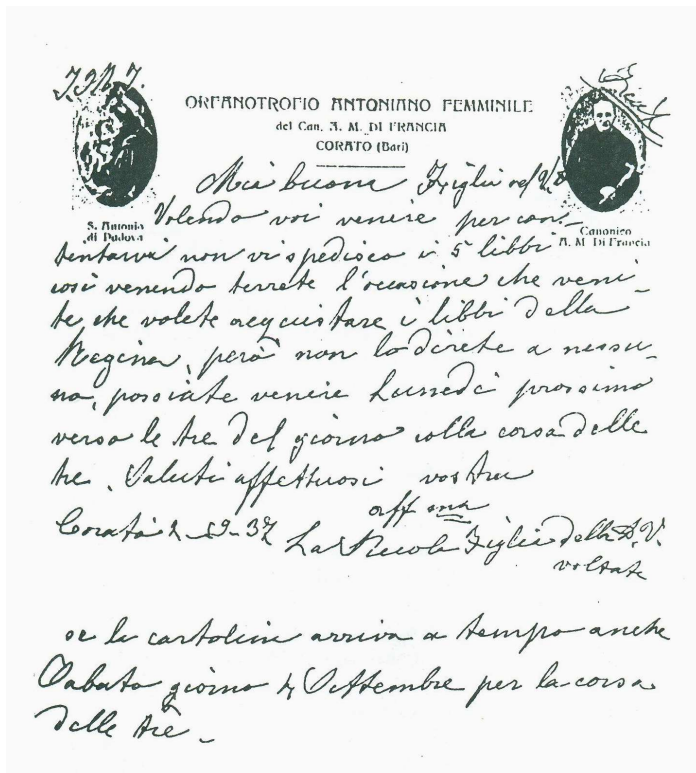 J.M.J.
ORFANOTROFIO ANTONIANO FEMMINILE
del Can. A. M. DI FRANCIA
CORATO (Bari)
S. Antonio
di Padova
Canonico
A. M. Di Francia
Mia buone Figlie nel V. D
Volendo voi venire per con-
tentarvi non vi spedisco i 5 libbi
così venendo terrete l'occasione che veni-
te, che volete acquistare i libbi della
Regina, però non lo direte a nessu-
no, possiate venire Lunedì prossimo
verso le tre del giorno colla corsa delle
tre. Saluti affettuosi vostra
aff ma
Corato 2-9-37 La Piccola Figlia della D. V.
voltate
se la cartolina arriva a tempo anche
Sabato giorno 4 Settembre per la corsa
delle tre.